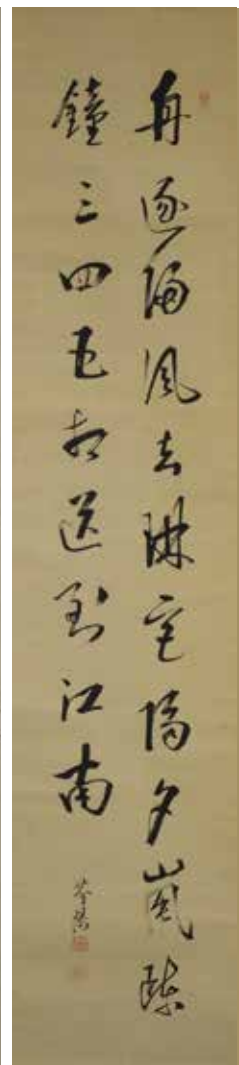 舟逐風去琳宮隔夕嵐疎
鐘三四五相送到江南